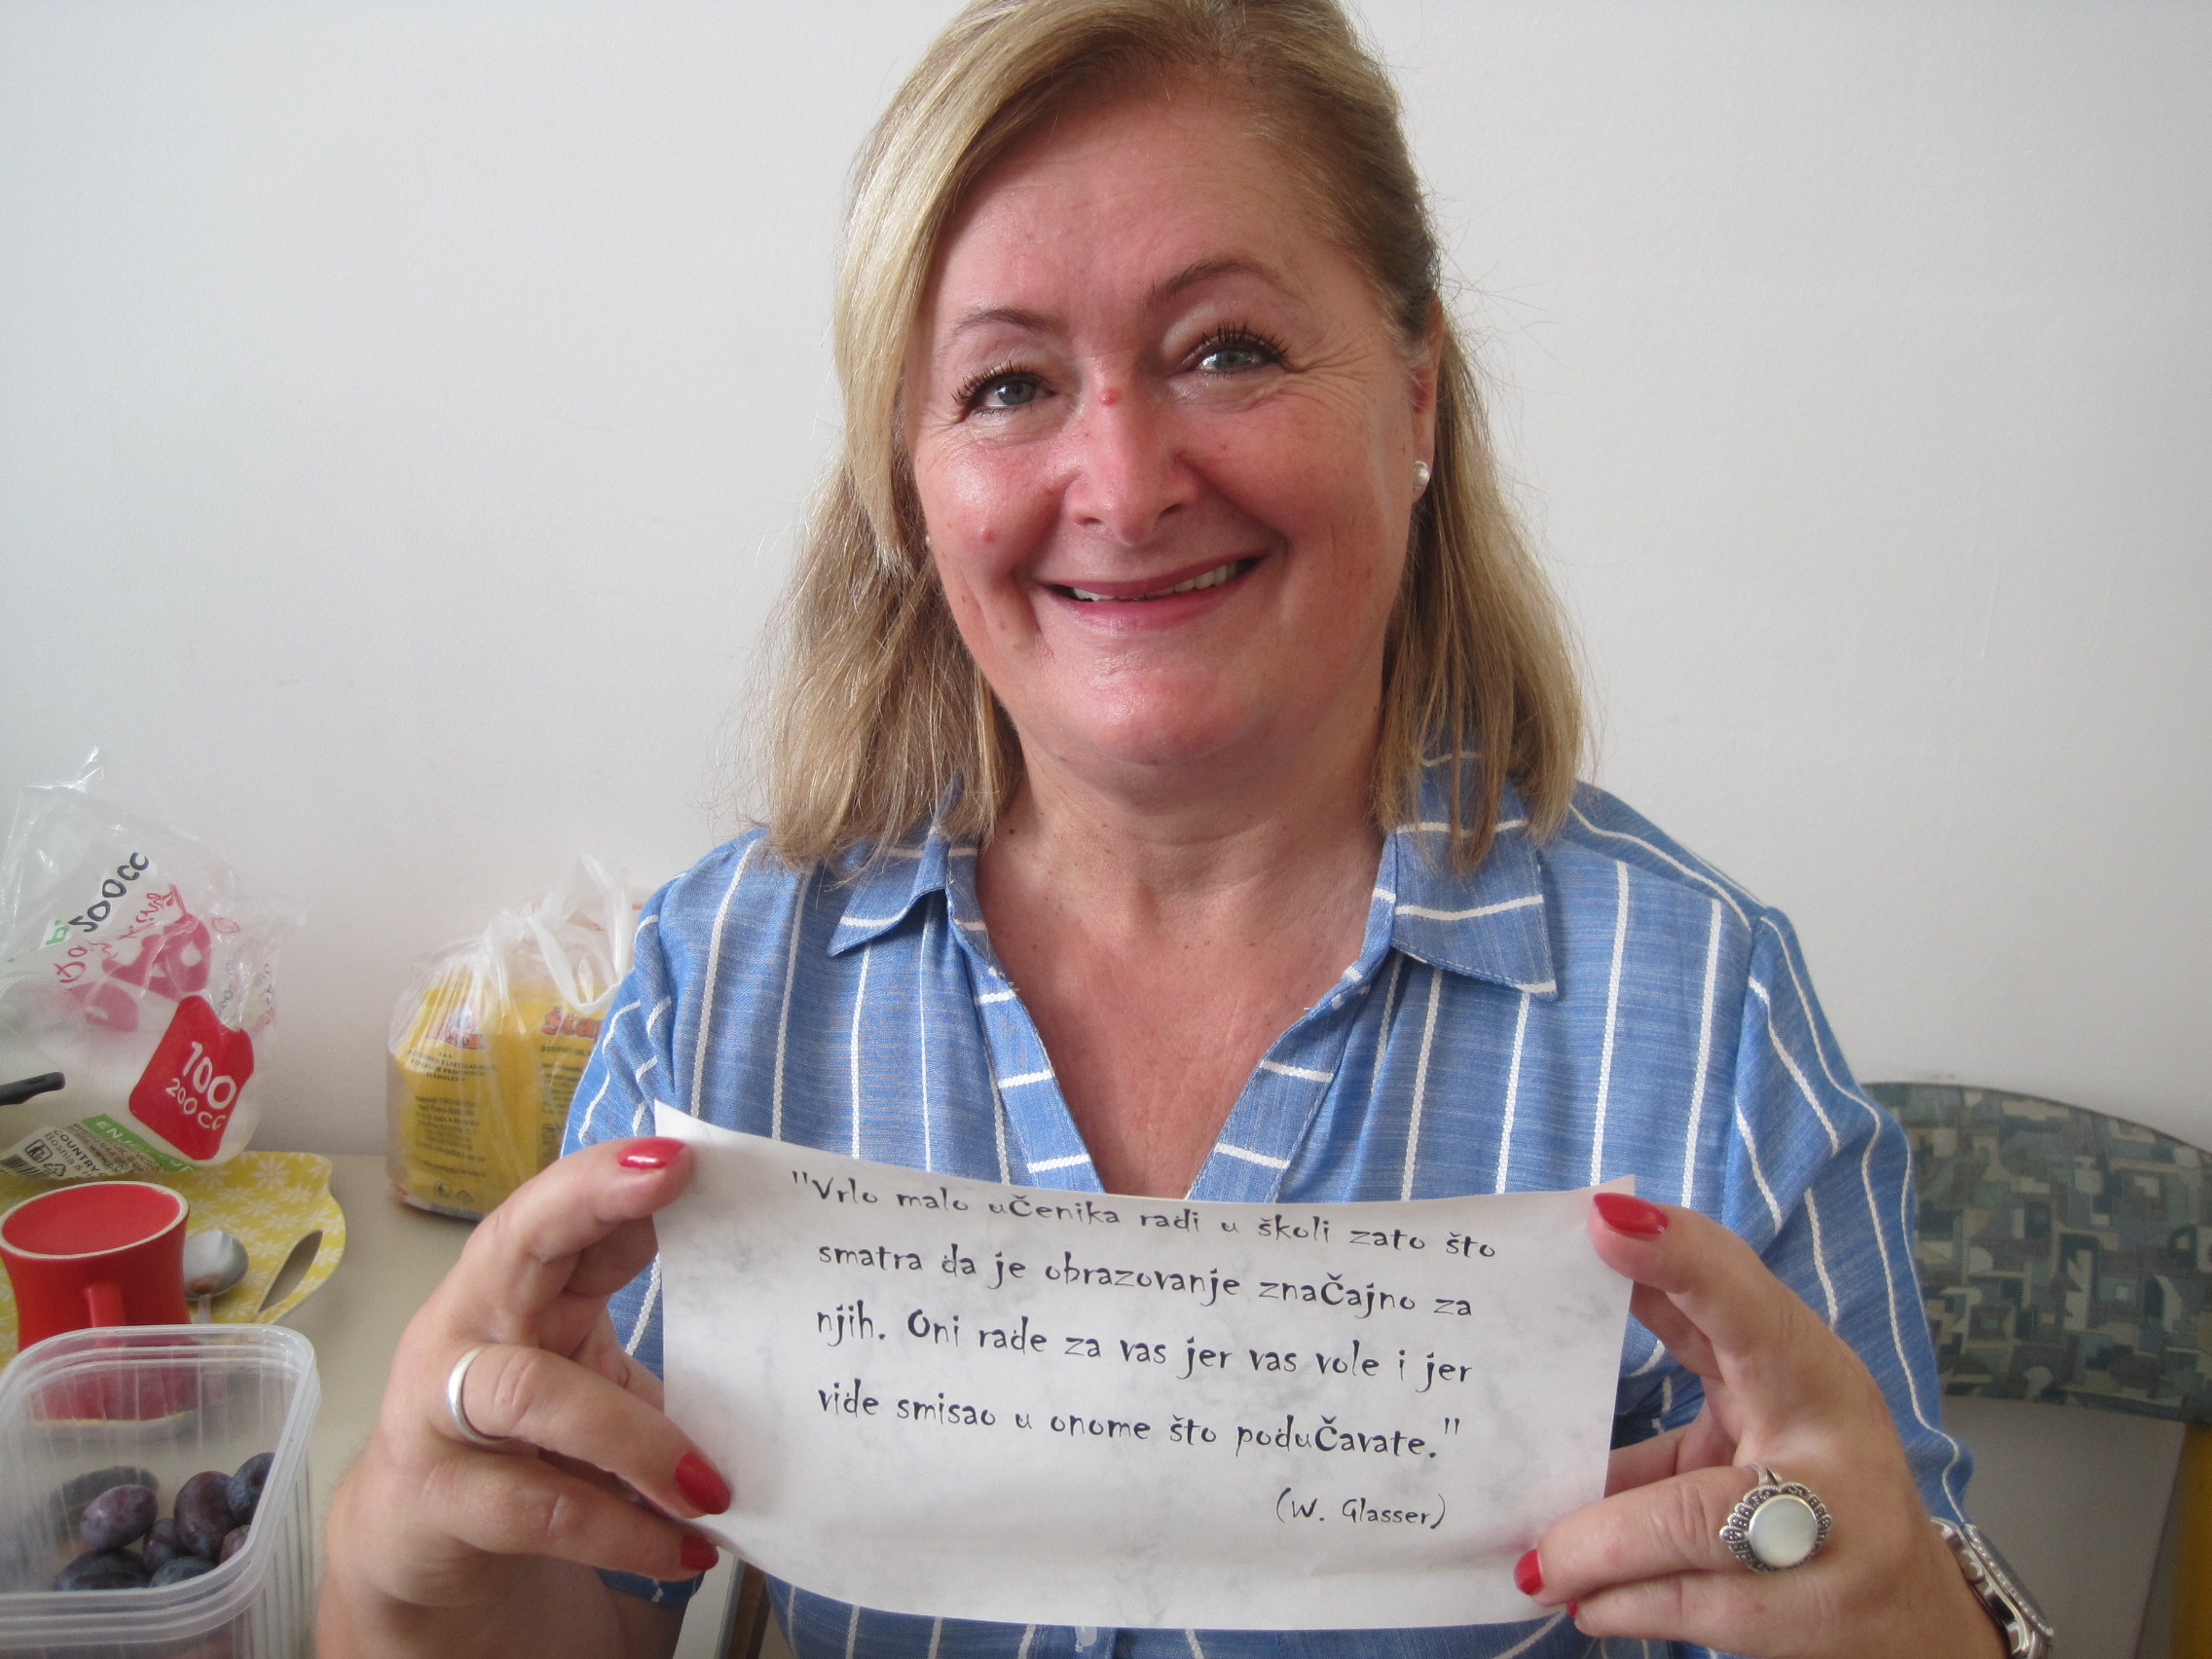 "Vrlo malo učenika radi u školi zato što
smatra da je obrazovanje značajno za
njih. Oni rade za vas jer vas vole i jer
vide smisao u onome što podučavate."
(W. Glasser)
500cc
100
200cc
ENJOY
COUNTRY